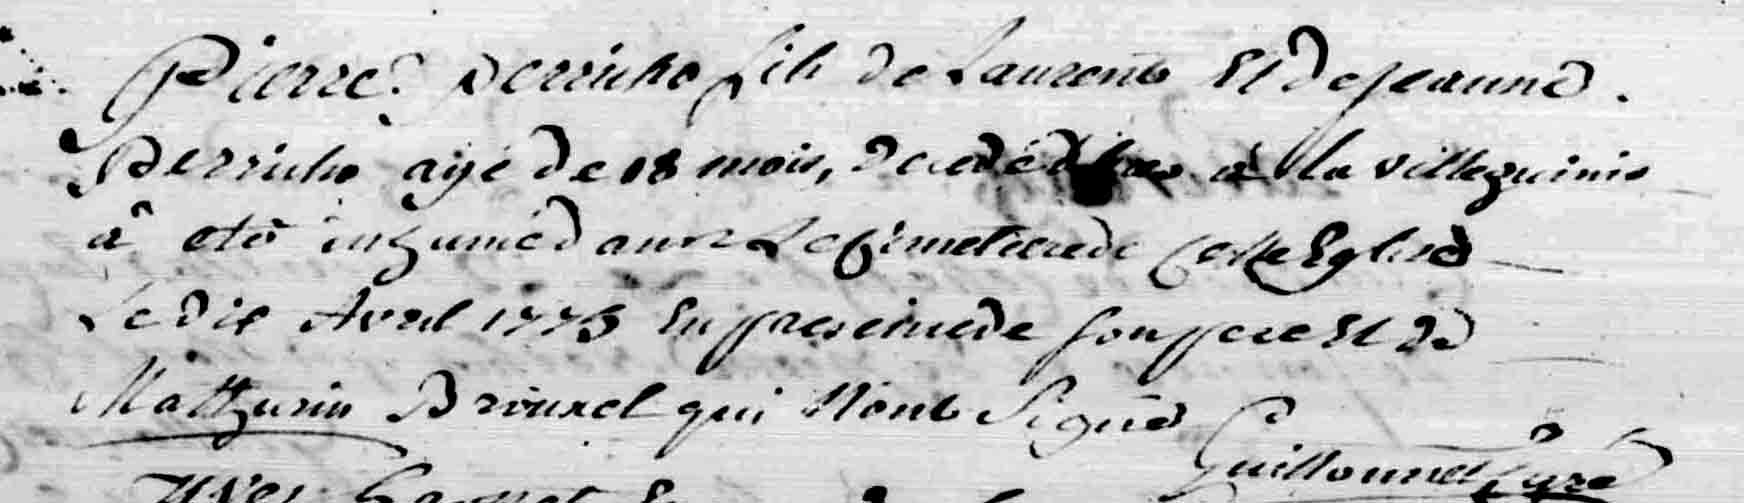 Pierre Derricho fils de Laurent Et de Jeanne .
Derricho agé de 18 mois, decedé hier à la Villeguinio
à eté inhumé dans Le Cimetiere de Cette Eglise
Le dix Avril 1773 En presence de son pere Et de
Mathurin Brouxel qui N'ont Signé
Guillonnet Curé
Yves